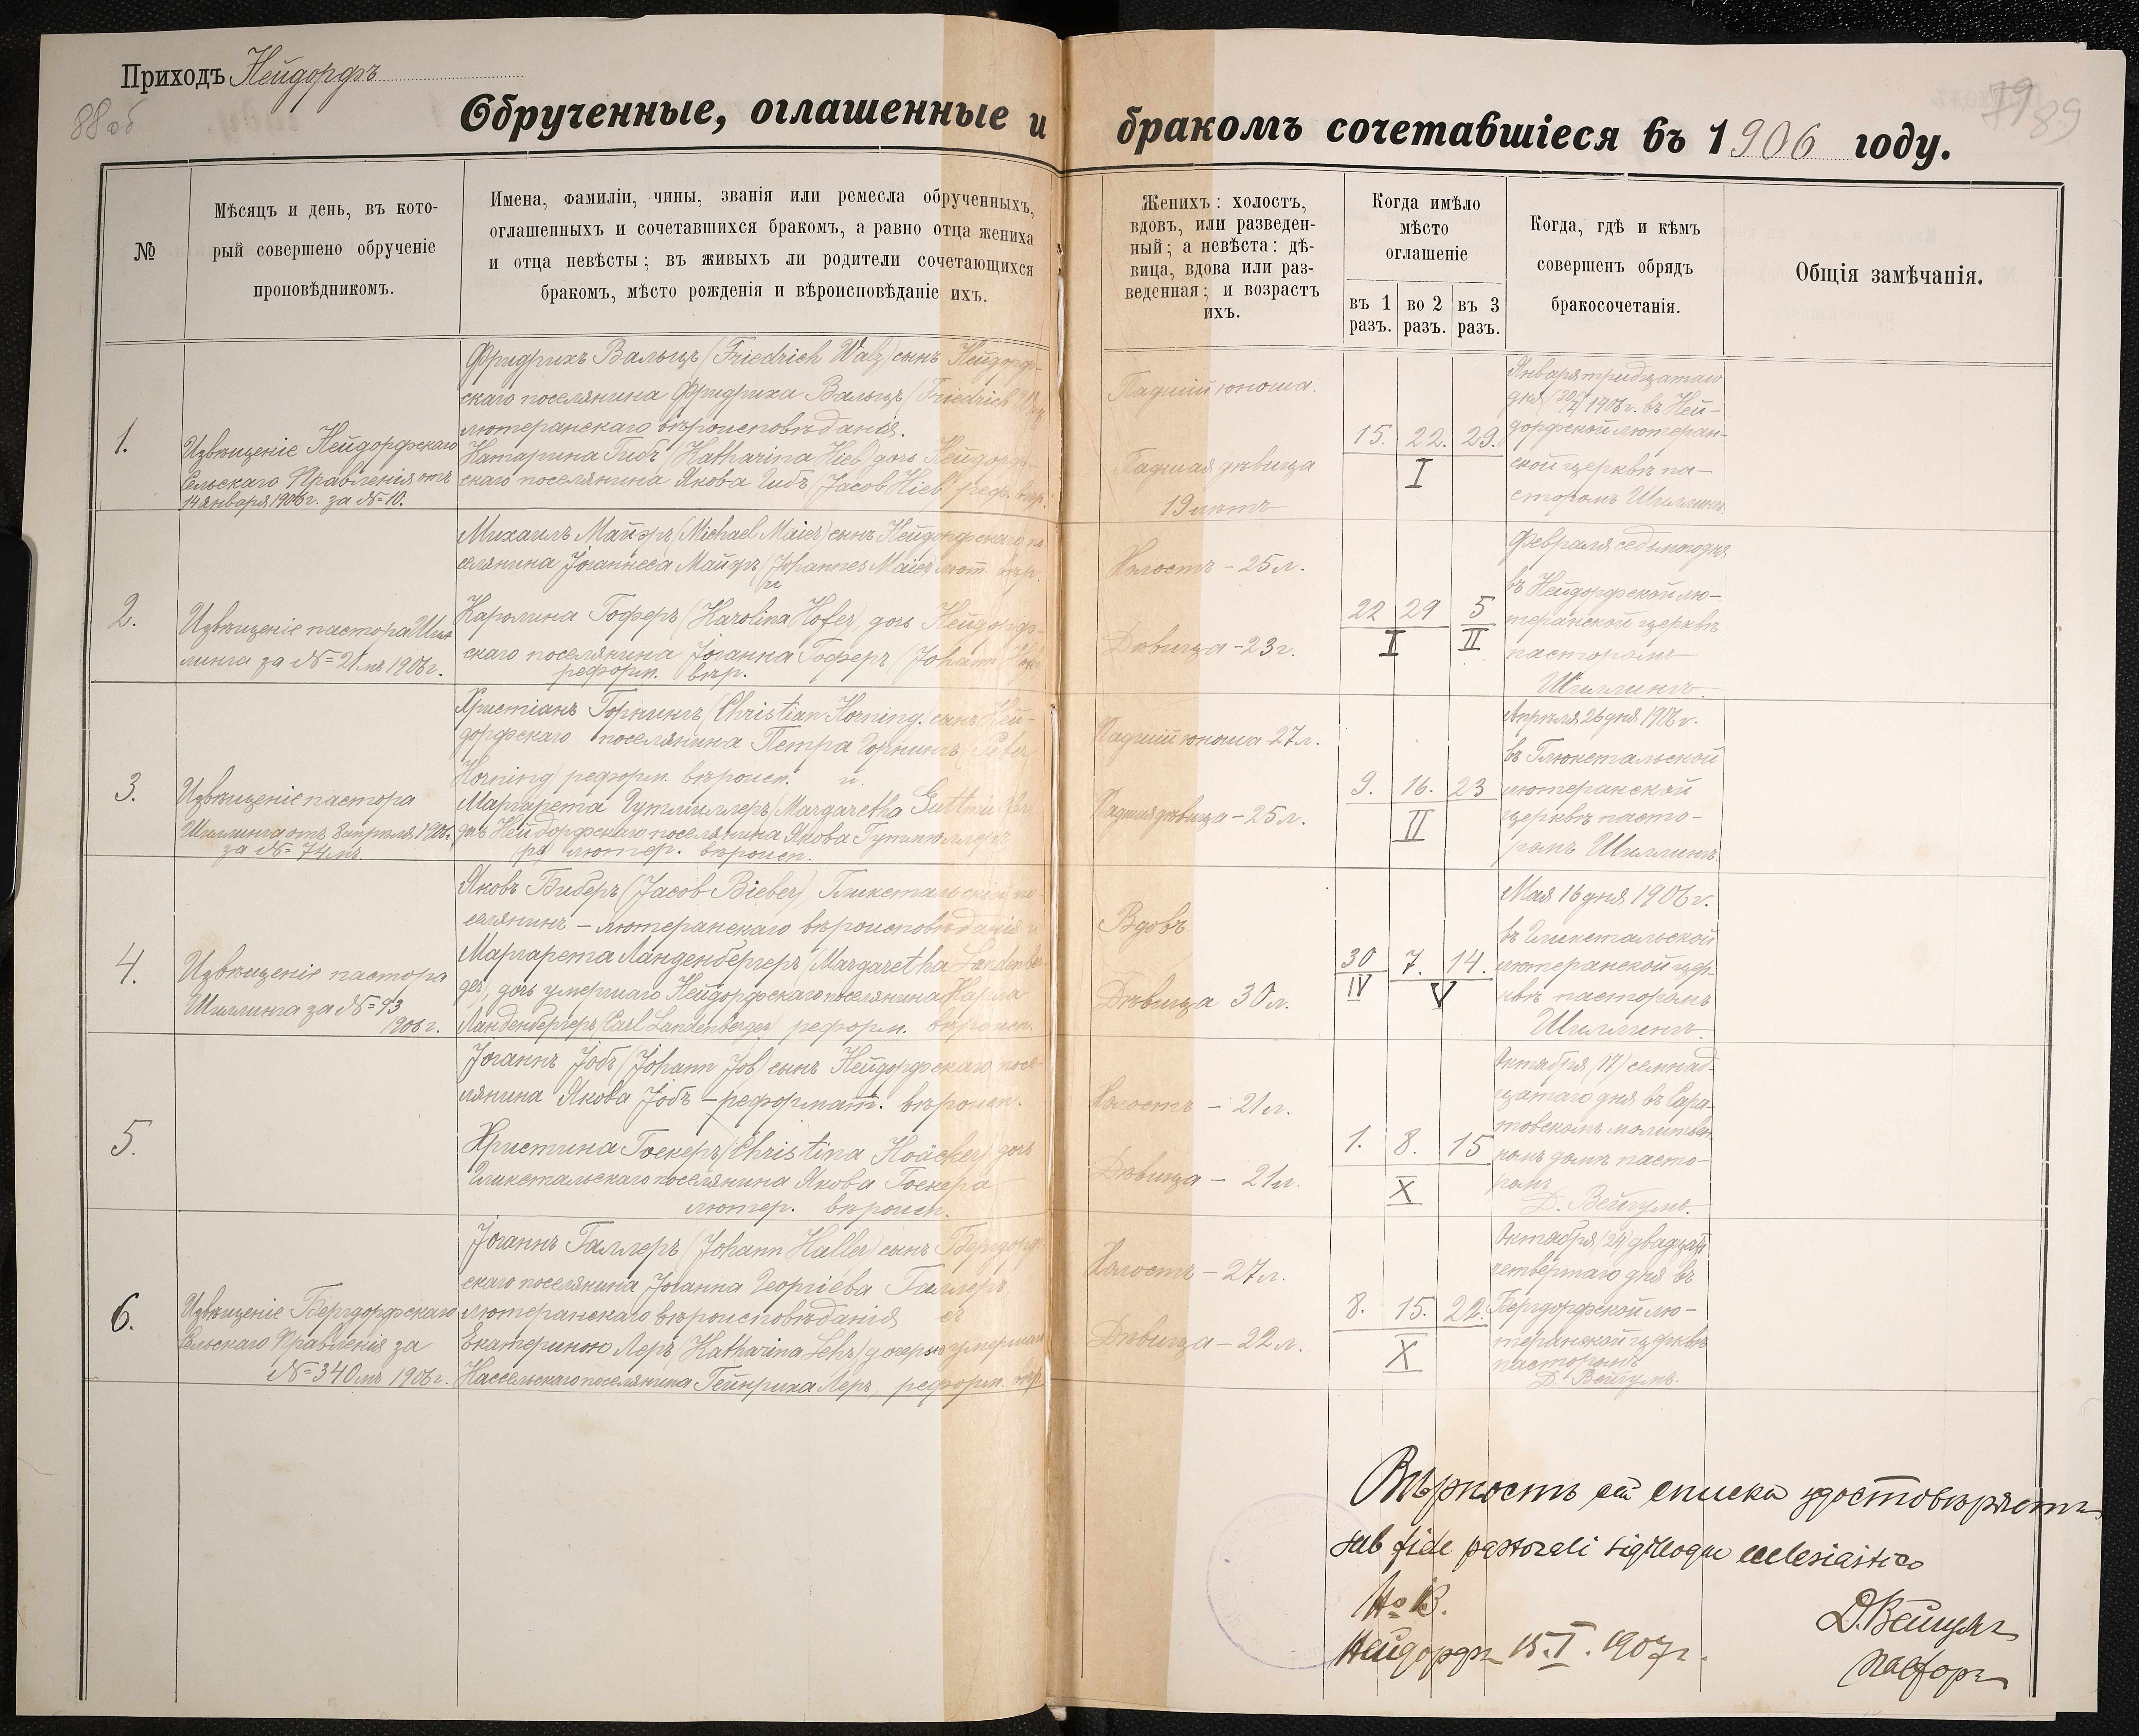 Приходъ Нейдорфъ
88 об
79
89
Обрученные, оглашенные и бракомъ сочетавшіеся въ 1906 году.
№
Мѣсяцъ и день, въ кото-
рый совершено обрученіе
проповѣдникомъ.
Имена, фамиліи, чины, званія или ремесла обрученныхъ,
оглашенныхъ и сочетавшихся бракомъ, а равно отца жениха
и отца невѣсты; въ живыхъ ли родители сочетающихся
бракомъ, мѣсто рожденія и вѣроисповѣданіе ихъ.
Женихъ: холостъ,
вдовъ, или разведен-
ный; а невѣста: дѣ-
вица, вдова или раз-
веденная; и возрастъ
ихъ.
Когда имѣло
мѣсто
оглашеніе
въ 1
разъ.
во 2
разъ.
въ 3
разъ.
Когда, гдѣ и кѣмъ
совершенъ обрядъ
бракосочетанія.
Общія замѣчанія.
1.
Извѣщеніе Нейдорфскаго
Сельскаго Правленія отъ
14 января 1906 г. за №=10.
Фридрихъ Вальцъ (Friedrich Walz) сынъ Нейдорф-
скаго поселянина Фридриха Вальцъ (Friedrich
лютеранскаго вѣроисповѣданія.
Катарина Гибъ (Katharina Hieb) дочь Нейдорф-
скаго поселянина Якова Гибъ (Jacob Hieb) реф. вѣр.
Падшій юноша.
Падшая дѣвица
19 лѣтъ
15. 22. 29.
I
Января тридцатаго
дня 1906 г. въ Ней-
дорфской лютеран-
ской церквѣ па-
сторомъ Шиллингъ
2.
Извѣщеніе пастора Шил-
линга за №=21мъ 1906 г.
Михаилъ Майэръ (Michael Maier) сынъ Нейдорфскаго по-
селянина Іоганнеса Майэръ (Johannes Maier) лют. вѣр.
и
Каролина Гоферъ (Karolina Hofer), дочь Нейдорф-
скаго поселянина Іоганна Гоферъ (Johann
реформ. вѣр.
Холостъ - 25 л.
Дѣвица - 23 г.
22 29 5
I II
Февраля седьмого дня
въ Нейдорфской лю-
теранской церквѣ
пасторомъ
Шиллингъ.
3.
Извѣщеніе пастора
Шиллинга отъ 8 апрѣля 1906 г.
за №=74мъ.
Христіанъ Горнингъ (Christian Horning.) сынъ Ней-
дорфскаго поселянина Петра Горнингъ (Peter
Horning) реформ. вѣроисп. и
Маргарета Гутмиллеръ (Margaretha
дочь Нейдорфскаго поселянина Якова
лютер. вѣроисп.
Падшій юноша 27 л.
Падшая дѣвица - 25 л.
9. 16. 23
II
Апрѣля 26 дня 1906 г.
въ Глюкстальской
лютеранской
церквѣ пасто-
ромъ Шиллингъ.
4.
Извѣщеніе пастора
Шиллинга за №=93
1906 г.
Яковъ Биберъ (Jacob Bieber), Гликстальскій по-
селянинъ - лютеранскаго вѣроисповѣданія и
Маргарета Ланденбергеръ (Margaretha Landenber-
ger), дочь умершаго Нейдорфскаго поселянина Карла
Ланденбергеръ (Carl Landenberger) реформ. вѣроисп.
Вдовъ
Дѣвица 30 л.
30 7. 14.
IV V
Мая 16 дня 1906 г.
въ Гликстальской
лютеранской цер-
квѣ пасторомъ
Шиллингъ.
5.
Іоганнъ Іобъ (Johann Job) сынъ Нейдорфскаго посе-
лянина Якова Іобъ - реформат. вѣроисп.
Христина Гоекеръ (Christina Hoäcker) дочь
Гликстальскаго поселянина Якова Гоекера
лютер. вѣроисп.
Холостъ - 21 л.
Дѣвица - 21 л.
1. 8. 15
X
Октября (17) семнад-
цатаго дня въ Сара-
товскомъ молитвен-
номъ домѣ пасто-
ромъ
Д. Вейгумъ.
6.
Извѣщеніе Бергдорфскаго
Сельскаго Правленія за
№=340мъ 1906 г.
Іоганнъ Галлеръ (Johann Haller) сынъ Бергдорф-
скаго поселянина Іоганна Георгіева Галлеръ
лютеранскаго вѣроисповѣданія съ
Екатериною Леръ (Katharina Lehr) дочерью умершаго
Кассельскаго поселянина Гейнриха Леръ, реформ. вѣр.
Холостъ - 27 л.
Дѣвица - 22 л.
8. 15. 22.
X
Октября (24) двадцать
четвертаго дня въ
Бергдорфской лю-
теранской церквѣ
пасторомъ
Д. Вейгумъ.
Вѣрность сей списка удостовѣряетъ
sub fide pastorali sigilloque ecclesiastico
№ 13.
Нейдорфъ 15.I.1907 г.
Д. Вейгумъ
пасторъ